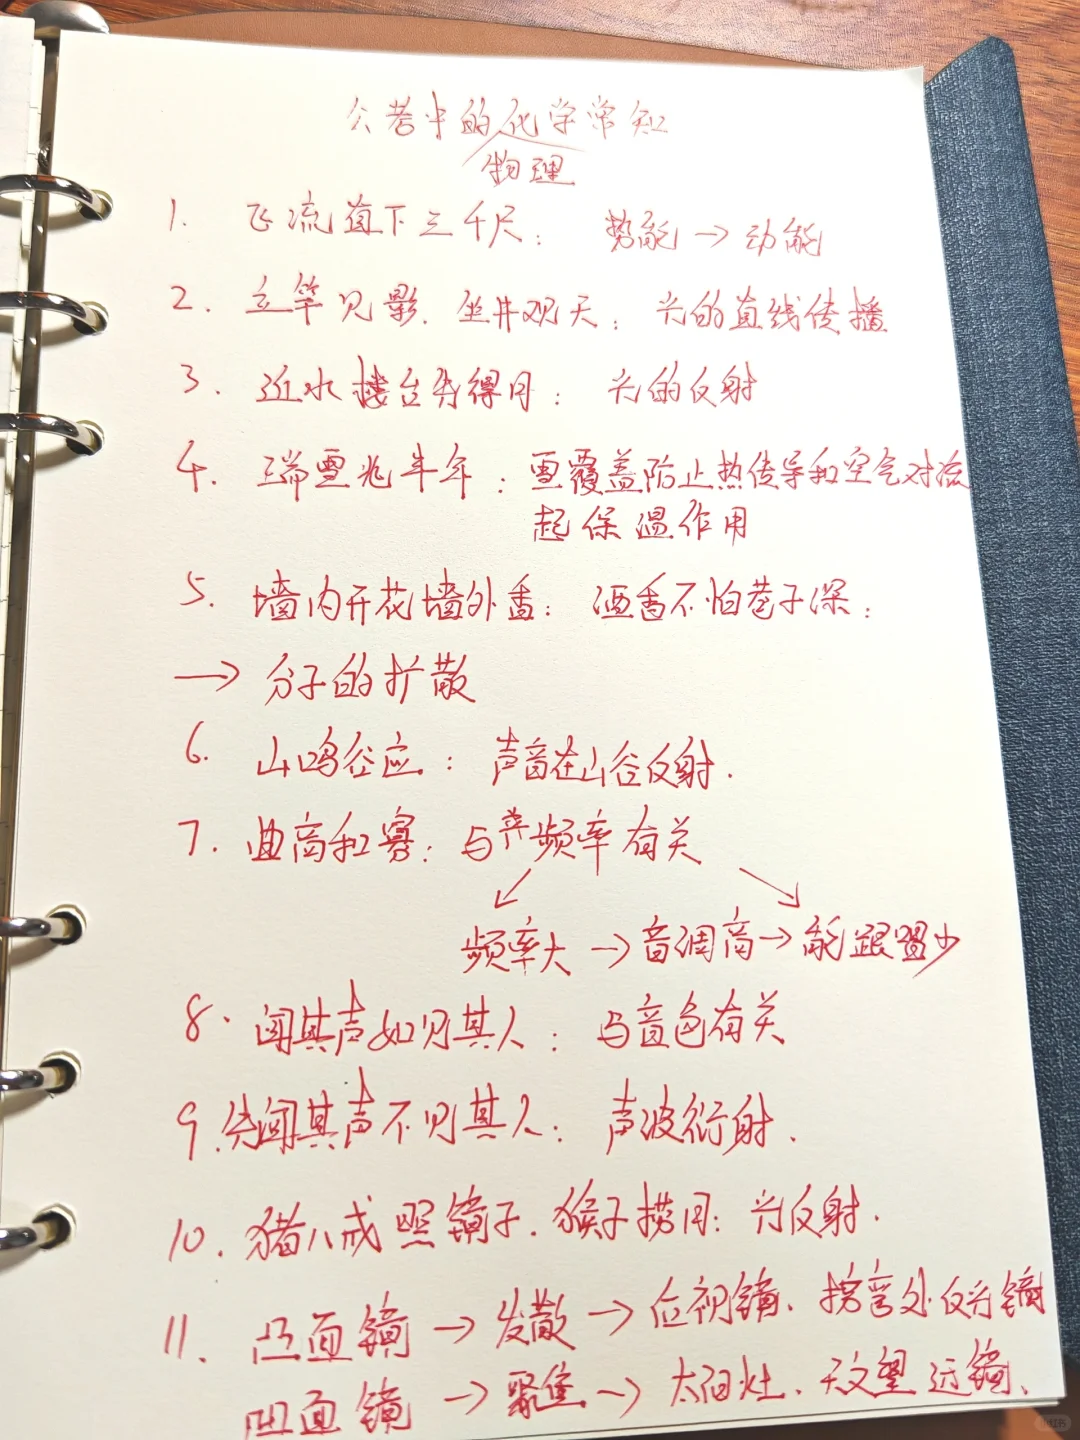 公考中的化学常知
物理
1. 飞流直下三千尺： 势能→动能
2. 立竿见影．坐井观天：光的直线传播
3. 近水楼台先得月： 光的反射
4. 瑞雪兆丰年：雪覆盖防止热传导和空气对流
起保温作用
5. 墙内开花墙外香： 酒香不怕巷子深：
→ 分子的扩散
6. 山鸣谷应： 声音在山谷反射.
7. 曲高和寡：与频率有关
频率大→音调高→能跟唱少
8. 闻其声如见其人： 与音色有关
9. 先闻其声不见其人： 声波衍射.
10. 猪八戒照镜子．猴子捞月：光反射.
11. 凸面镜→发散→后视镜．拐弯处反光镜
凹面镜→聚焦→太阳灶．天文望远镜、